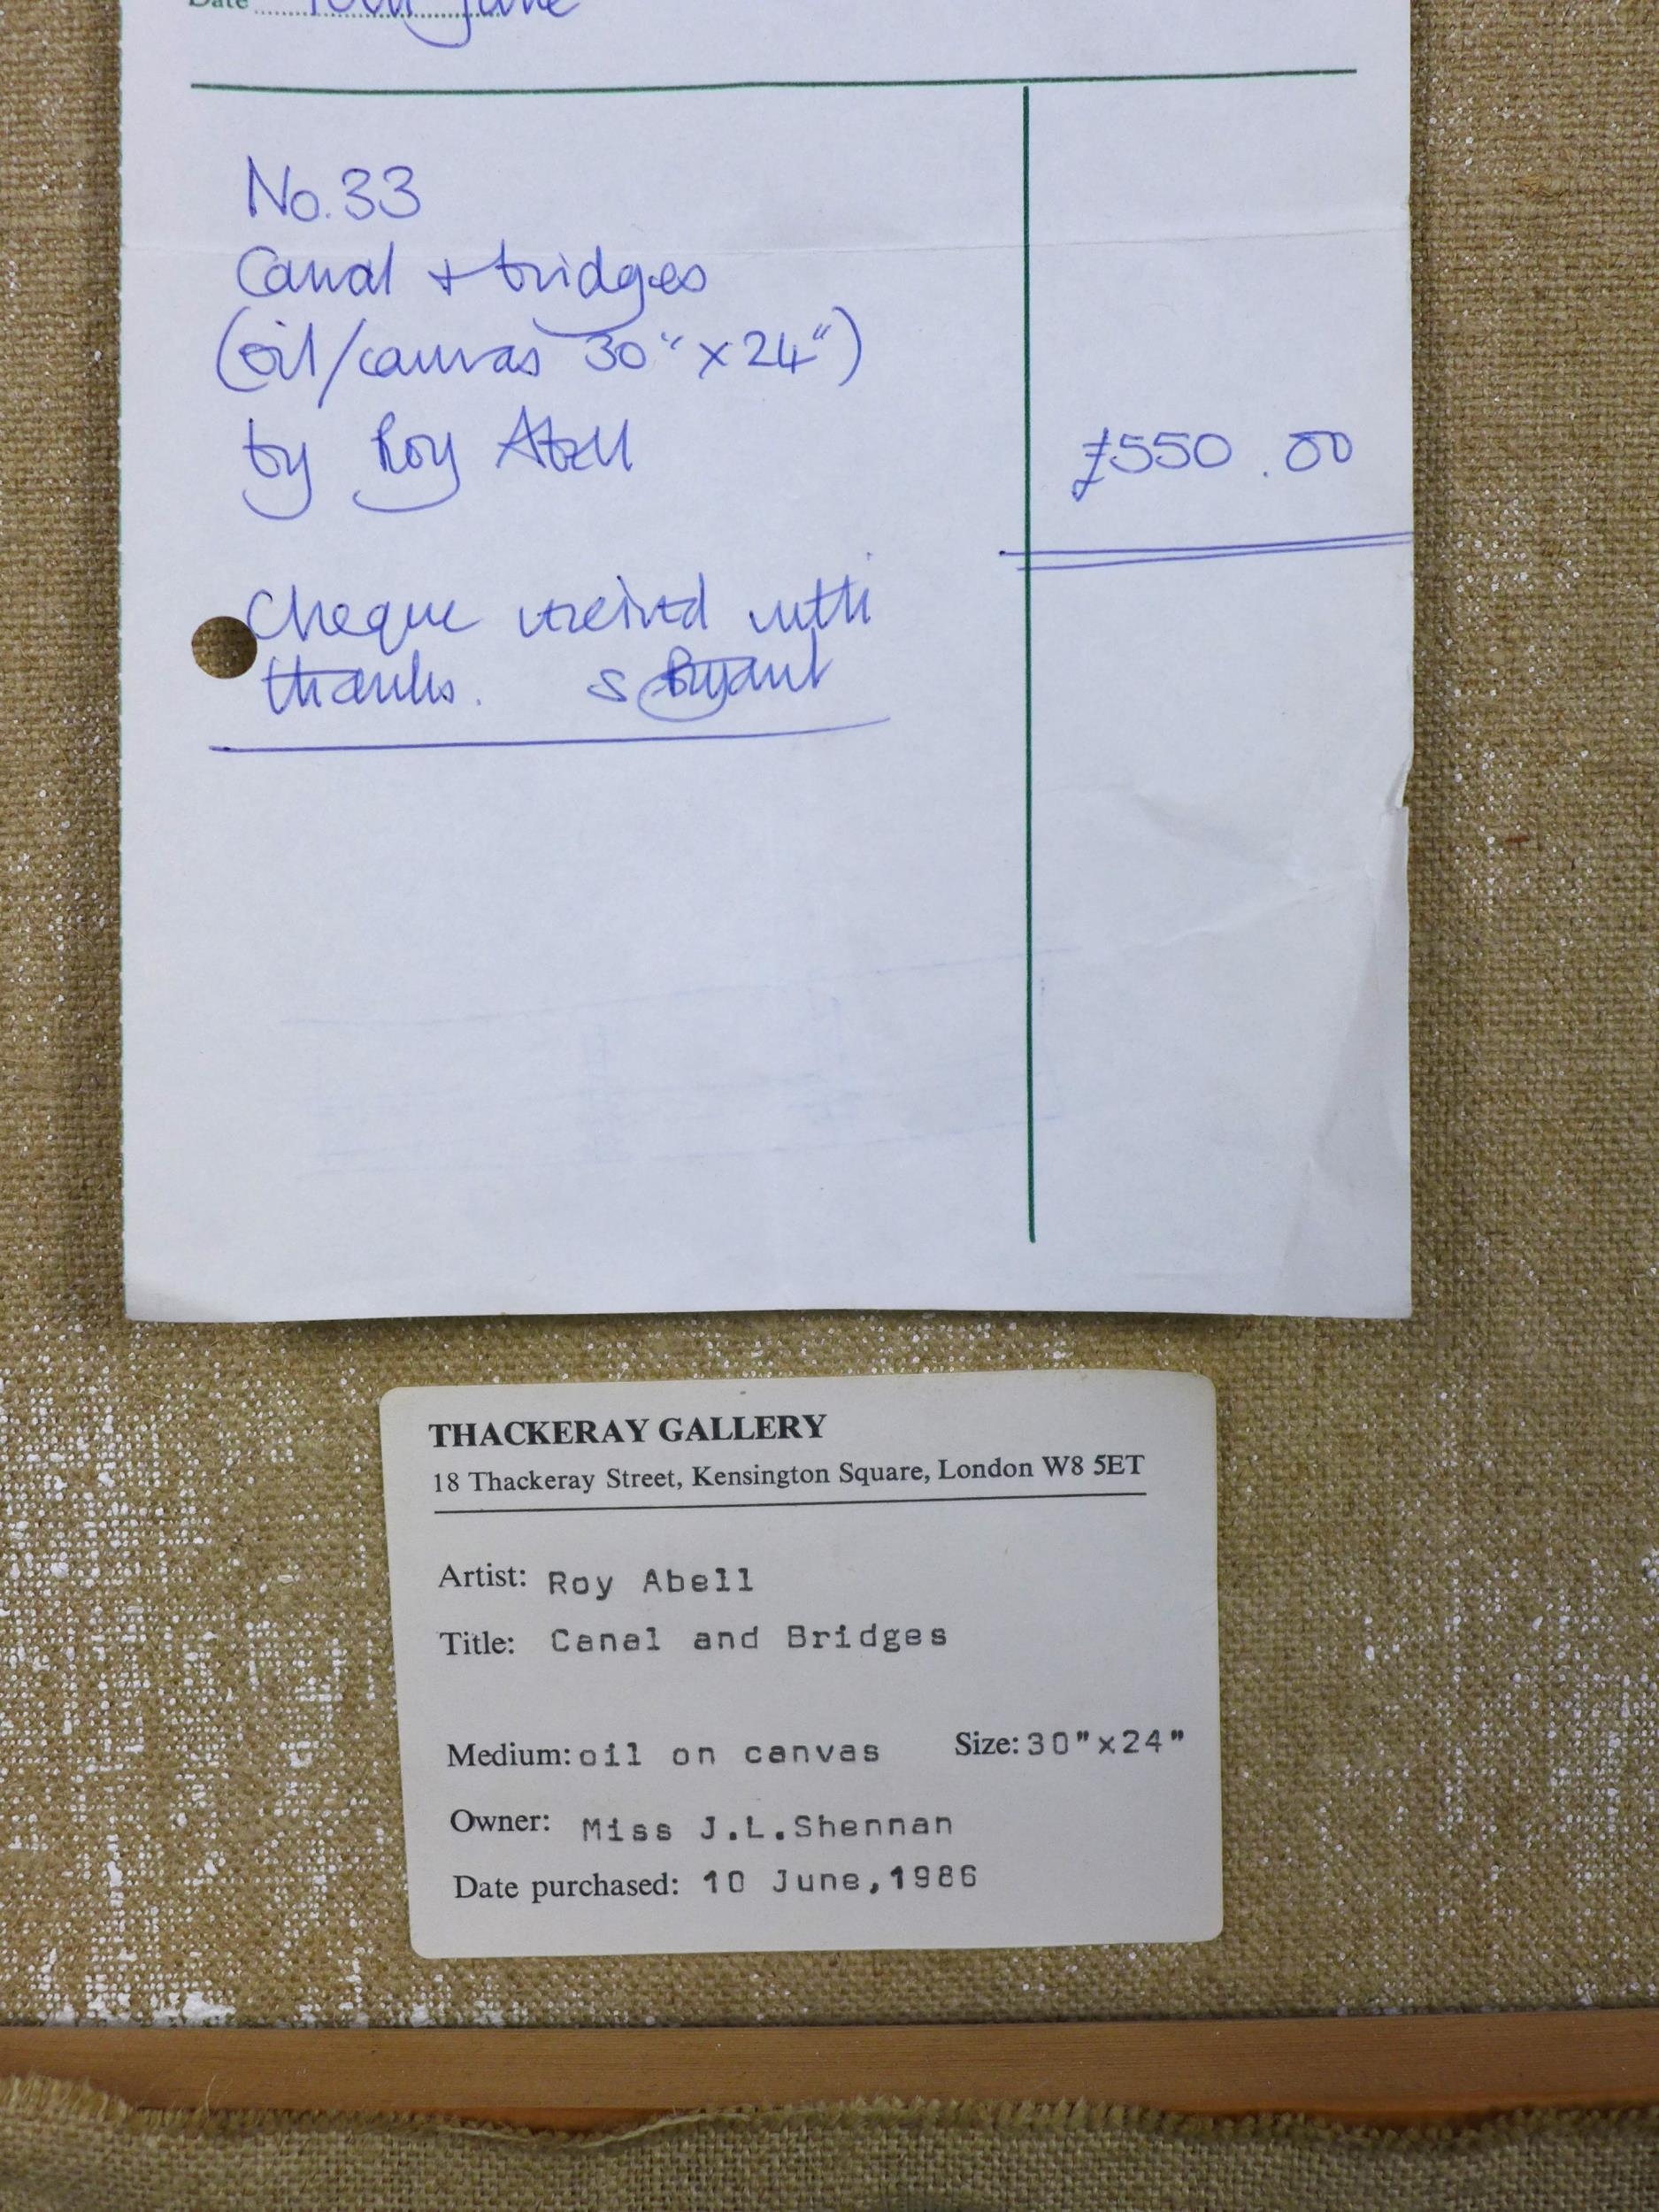 Date 10th June
No. 33
Canal + bridges
(oil/canvas 30" x 24")
by Roy Abell
£550.00
Cheque received with
thanks. S Bryant
THACKERAY GALLERY
18 Thackeray Street, Kensington Square, London W8 5ET
Artist: Roy Abell
Title: Canal and Bridges
Medium: oil on canvas Size: 30"x24"
Owner: Miss J.L.Shennan
Date purchased: 10 June,1986